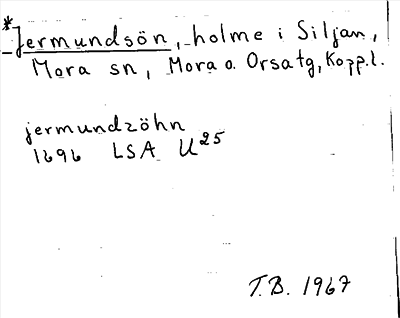 *Jermundsön, holme i Siljan,
Mora sn, Mora o. Orsa tg, Kopp.l.
jermundzöhn
1696 LSA U25
T.B. 1967